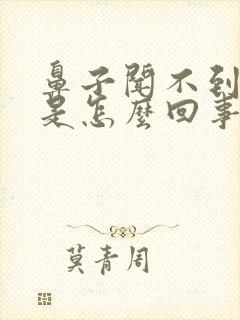 鼻子闻不到
是怎麽回事
莫青周